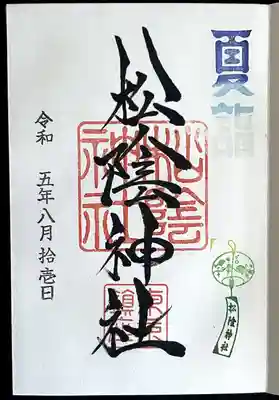 夏詣
松陰神社
松陰神社
松陰神社
令和 五年八月 拾壱日